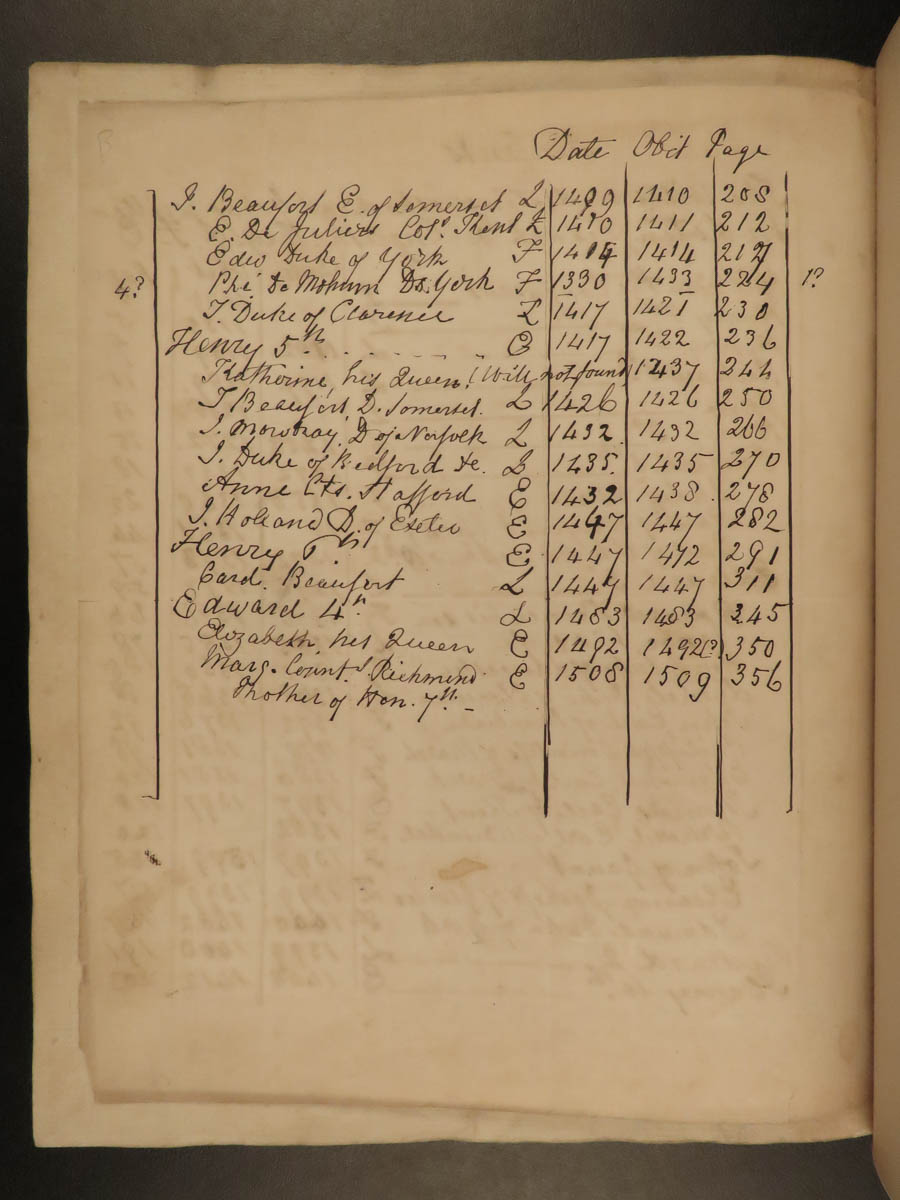 Date Obit Page
J. Beaufort E. of Somerset L 1409 1410 208
E. De Juliers Cots. Kent L 1410 1411 212
Edw Duke of York F 1414 1414 217
4? Phi de Mohun Ds. York F 1330 1433 224 1?
T. Duke of Clarence L 1417 1421 230
Henry 5th C 1417 1422 236
Katherine, his Queen. (Will not found) 1437 244
T Beaufort, D. Somerset. L 1426 1426 250
J. Mowbray, D of Norfolk L 1432. 1432 266
J. Duke of Bedford &c. L 1435. 1435 270
Anne Cts. Stafford E 1432 1438. 278
J. Holland D. of Exeter E 1447 1447 282
Henry 6th E 1447 1472 291
Card. Beaufort L 1447 1447 311
Edward 4th L 1483 1483 345
Elizabeth, his Queen E 1492 1492(?) 350
Marg. Counts. Richmond E 1508 1509 356
Mother of Hen. 7th. -